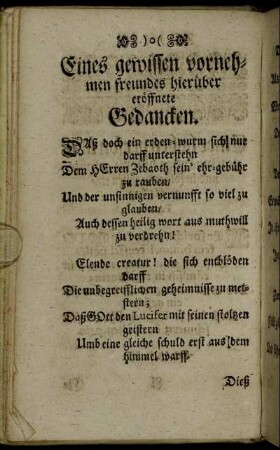 )o(
Eines gewissen vorneh-
men freundes hierüber
eröffnete
Gedancken.
DAß doch ein erden-wurm sich nur
darff unterstehn
Dem HErren Zebaoth sein' ehr-gebühr
zu rauben/
Und der unsinnigen vernunfft so viel zu
glauben/
Auch dessen heilig wort aus muthwill
zu verdrehn!
Elende creatur! die sich entblöden
darff
Die unbegreifflichen geheimnisse zu mei-
stern;
Daß GOtt den Lucifer mit seinen stoltzen
geistern
Umb eine gleiche schuld erst aus dem
himmel warff.
Dieß